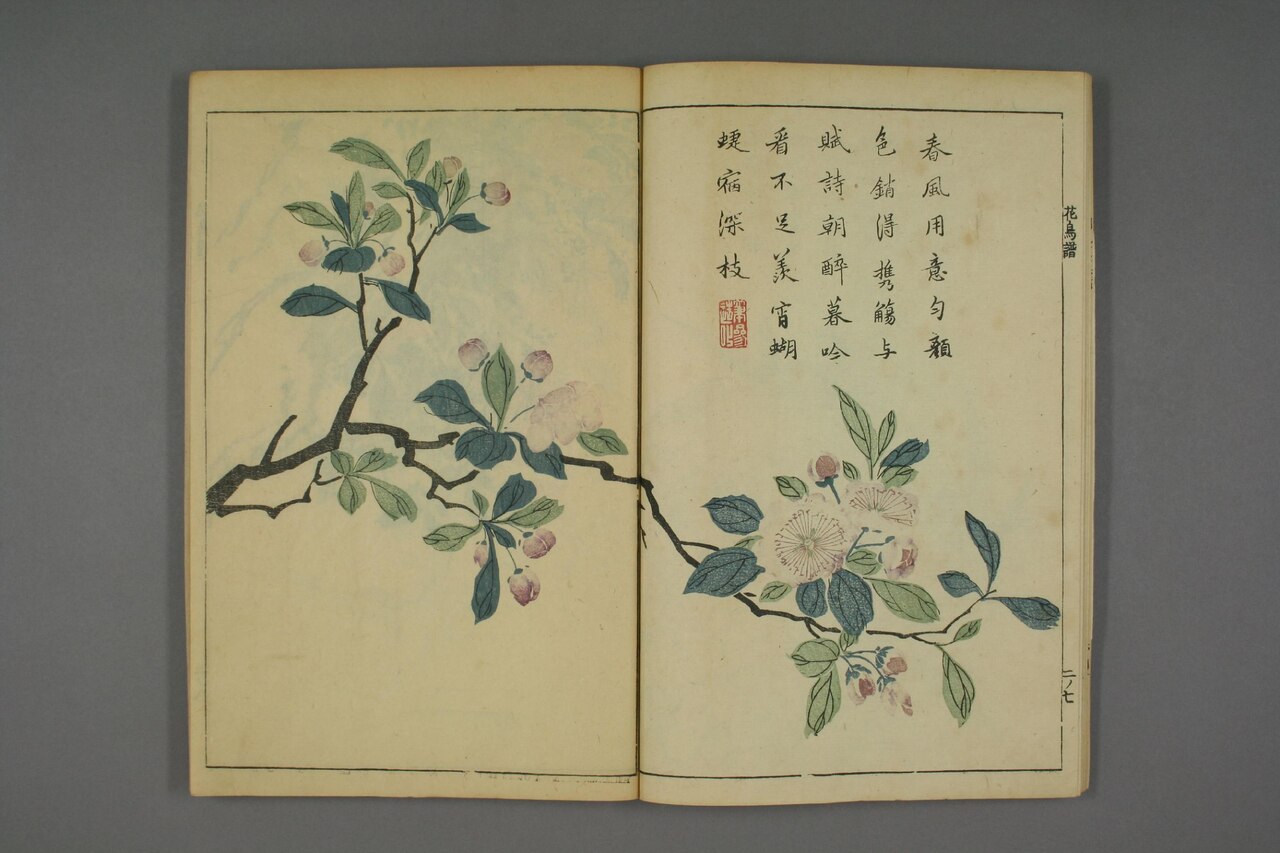 春風用意勻顏
色銷得携觴与
賦詩朝醉暮吟
看不足羨宵蝴
蜨宿深枝
花鳥譜
二ノ七